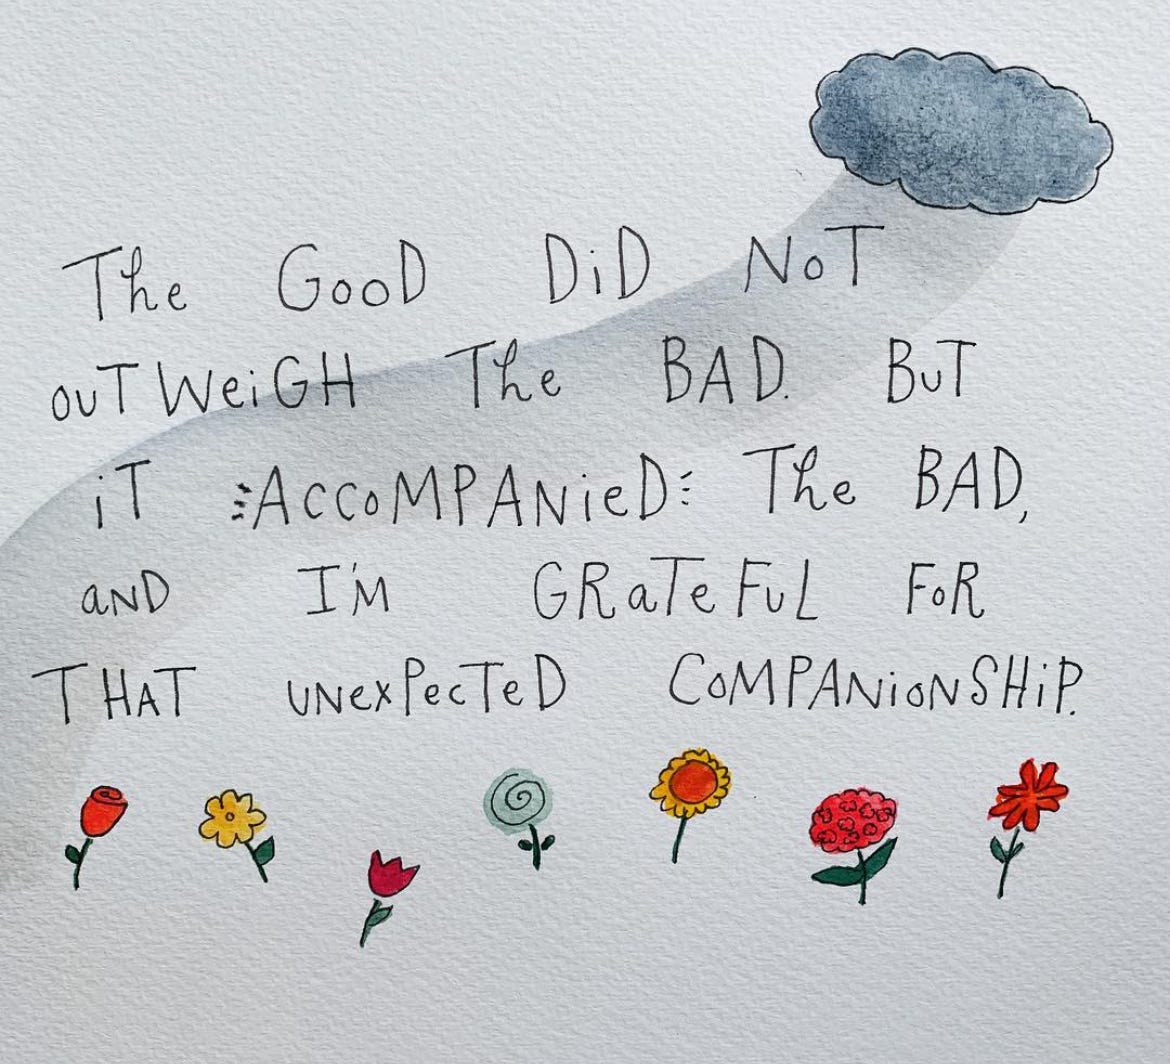 The GooD DiD NoT
ouTWeiGH The BAD. BuT
iT ACCoMPANieD The BAD,
aND I'M GRaTeFuL FoR
THAT uNexPecTeD CoMPANioNSHiP.